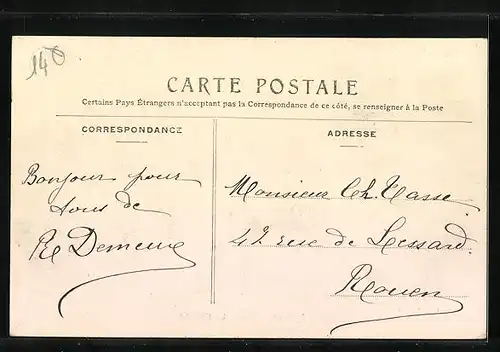 140
CARTE POSTALE
Certains Pays Étrangers n'acceptant pas la Correspondance de ce côté, se renseigner à la Poste
CORRESPONDANCE
ADRESSE
Bonjour pour
tous de
Monsieur Ch. Tasse
47 rue de Lessard
Rouen